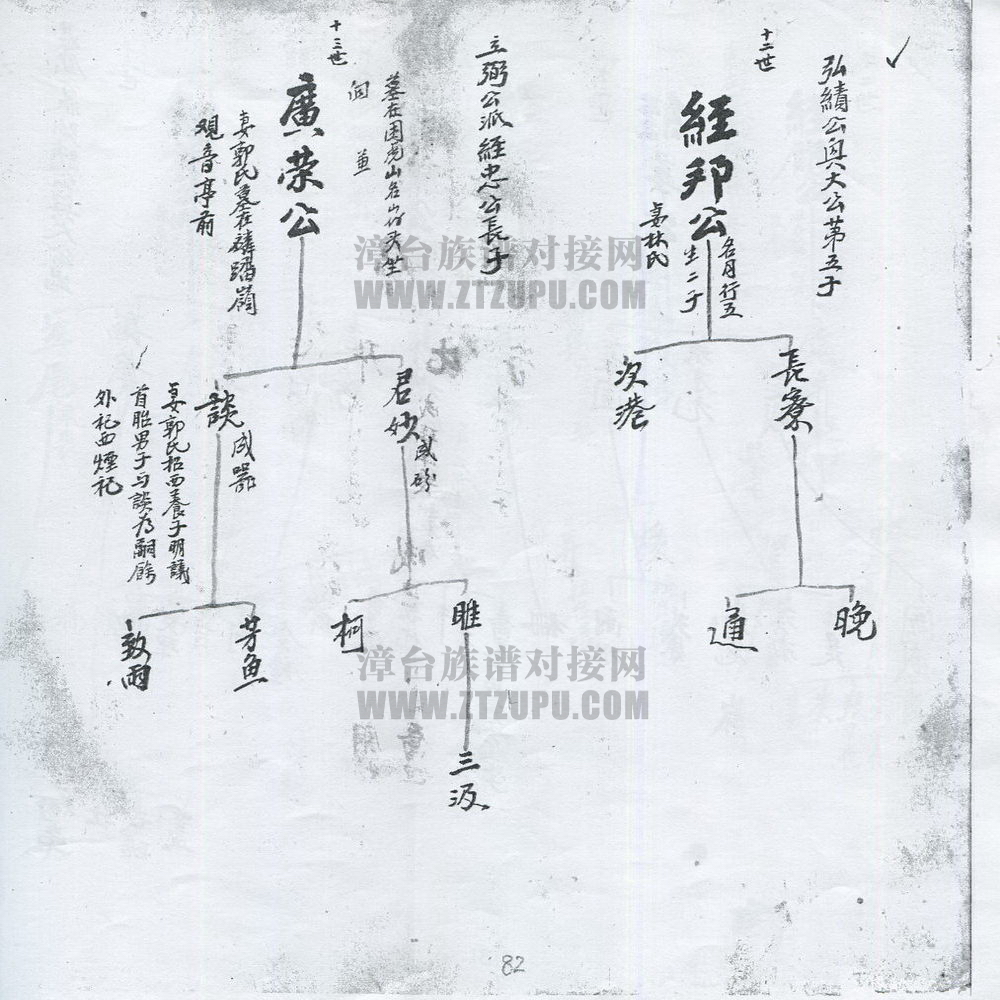 弘績公與大公第五子
十二世
經邦公
名月行五
生二子
妻林氏
長寮
次港
晚
通
立弼公派經忠公長子
十三世
廣荣公
妻郭氏墓在磷踏嶺
观音亭前
君妙
咸
談
咸器
妻郭氏招西養子明議
首胎男子与談为嗣餘
外祀西煙祀
睢
柯
三汲
芳魚
致雨
漳台族谱对接网
WWW.ZTZUPU.COM
漳台族谱对接网
WWW.ZTZUPU.COM
82